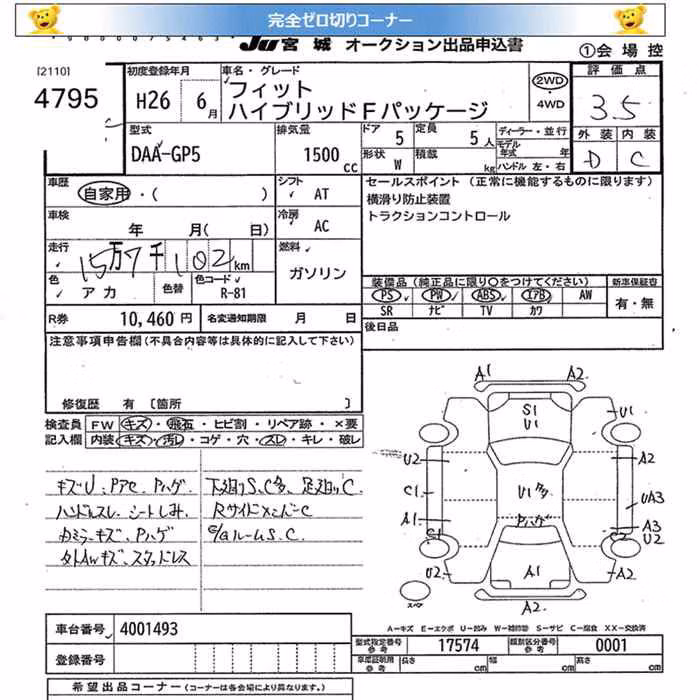 完全ゼロ切りコーナー
JU宮城 オークション出品申込書
①会場控
[2110]
4795
初度登録年月
H26 6月
車名・グレード
フィット
ハイブリッドFパッケージ
2WD
・
4WD
評価点
3.5
型式
DAA-GP5
排気量
1500 cc
ドア 5
定員 5人
形状 W
積載 kg
ディーラー・並行
モデル年式 年
ハンドル 左・右
外装 内装
D C
車歴 自家用・( )
シフト AT
セールスポイント (正常に機能するものに限ります)
横滑り防止装置
トラクションコントロール
車検 年 月( 日)
冷房 AC
走行 15万7千102km
燃料 ガソリン
色 アカ
色替
色コード R-81
装備品 (純正品に限り○をつけてください)
PS PW ABS エアB AW
SR ナビ TV カワ
新車保証書
有・無
R券 10,460円
名変通知期限 月 日
後日品
注意事項申告欄 (不具合内容等は具体的に記入して下さい)
修復歴 有 [箇所 ]
検査員記入欄
FW キズ・飛石・ヒビ割・リペア跡・×要
内装 キズ・汚レ・コゲ・穴・スレ・キレ・破レ
キズU、Pアセ、Pハゲ
ハンドルスレ、シートしみ
Fカミラーキズ、Pハゲ
タトAwキズ、スタッドレス
下廻りS.C多、足廻りC
RサイドメンバーC
E/gルームS.C.
A1 A2
S1
U1
U1
U2 A2
C1 U1多 UA3
A1 Pハゲ A3
C1 S1 U2
U2 A1 U2
A2
スペア
A―キズ E―エクボ U―凹み W―補修跡 S―サビ C―腐食 XX―交換済
車台番号 4001493
型式指定番号 参考 17574
類別区分番号 参考 0001
登録番号
車庫証明用 参考 長さ cm 幅 cm 高さ cm
希望出品コーナー (コーナーは各会場により異なります。)